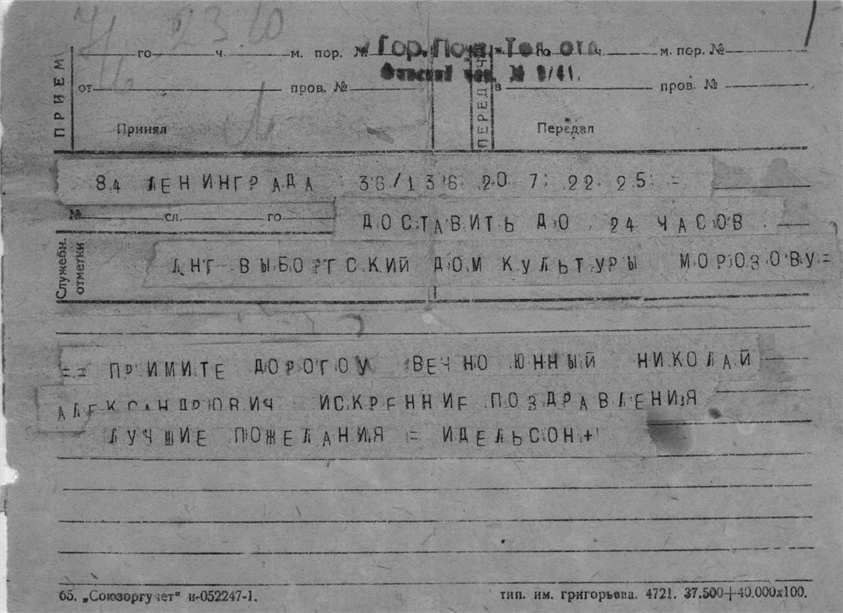 7/6 23 10
ПРИЕМ
го ч. м. пор. №
Гор. Поч.-Тел. отд.
ч. м. пор. №
от пров. №
№ 9/41.
в пров. №
Принял
ПЕРЕДАЧ
Передал
84 ЛЕНИНГРАДА 36/136 20 7 22 25 =
№ сл. го
ДОСТАВИТЬ ДО 24 ЧАСОВ
Служебн. отметки
ЛНГ-ВЫБОРГСКИЙ ДОМ КУЛЬТУРЫ МОРОЗОВУ=
== ПРИМИТЕ ДОРОГОУ ВЕЧНО ЮННЫЙ НИКОЛАЙ
АЛЕКСАНДРЮВИЧ ИСКРЕННИЕ ПОЗДРАВЛЕНИЯ
ЛУЧШИЕ ПОЖЕЛАНИЯ = ИДЕЛЬСОН+
65. „Союзоргучет" и-052247-1.
тип. им. григорьева. 4721. 37.500+40.000х100.